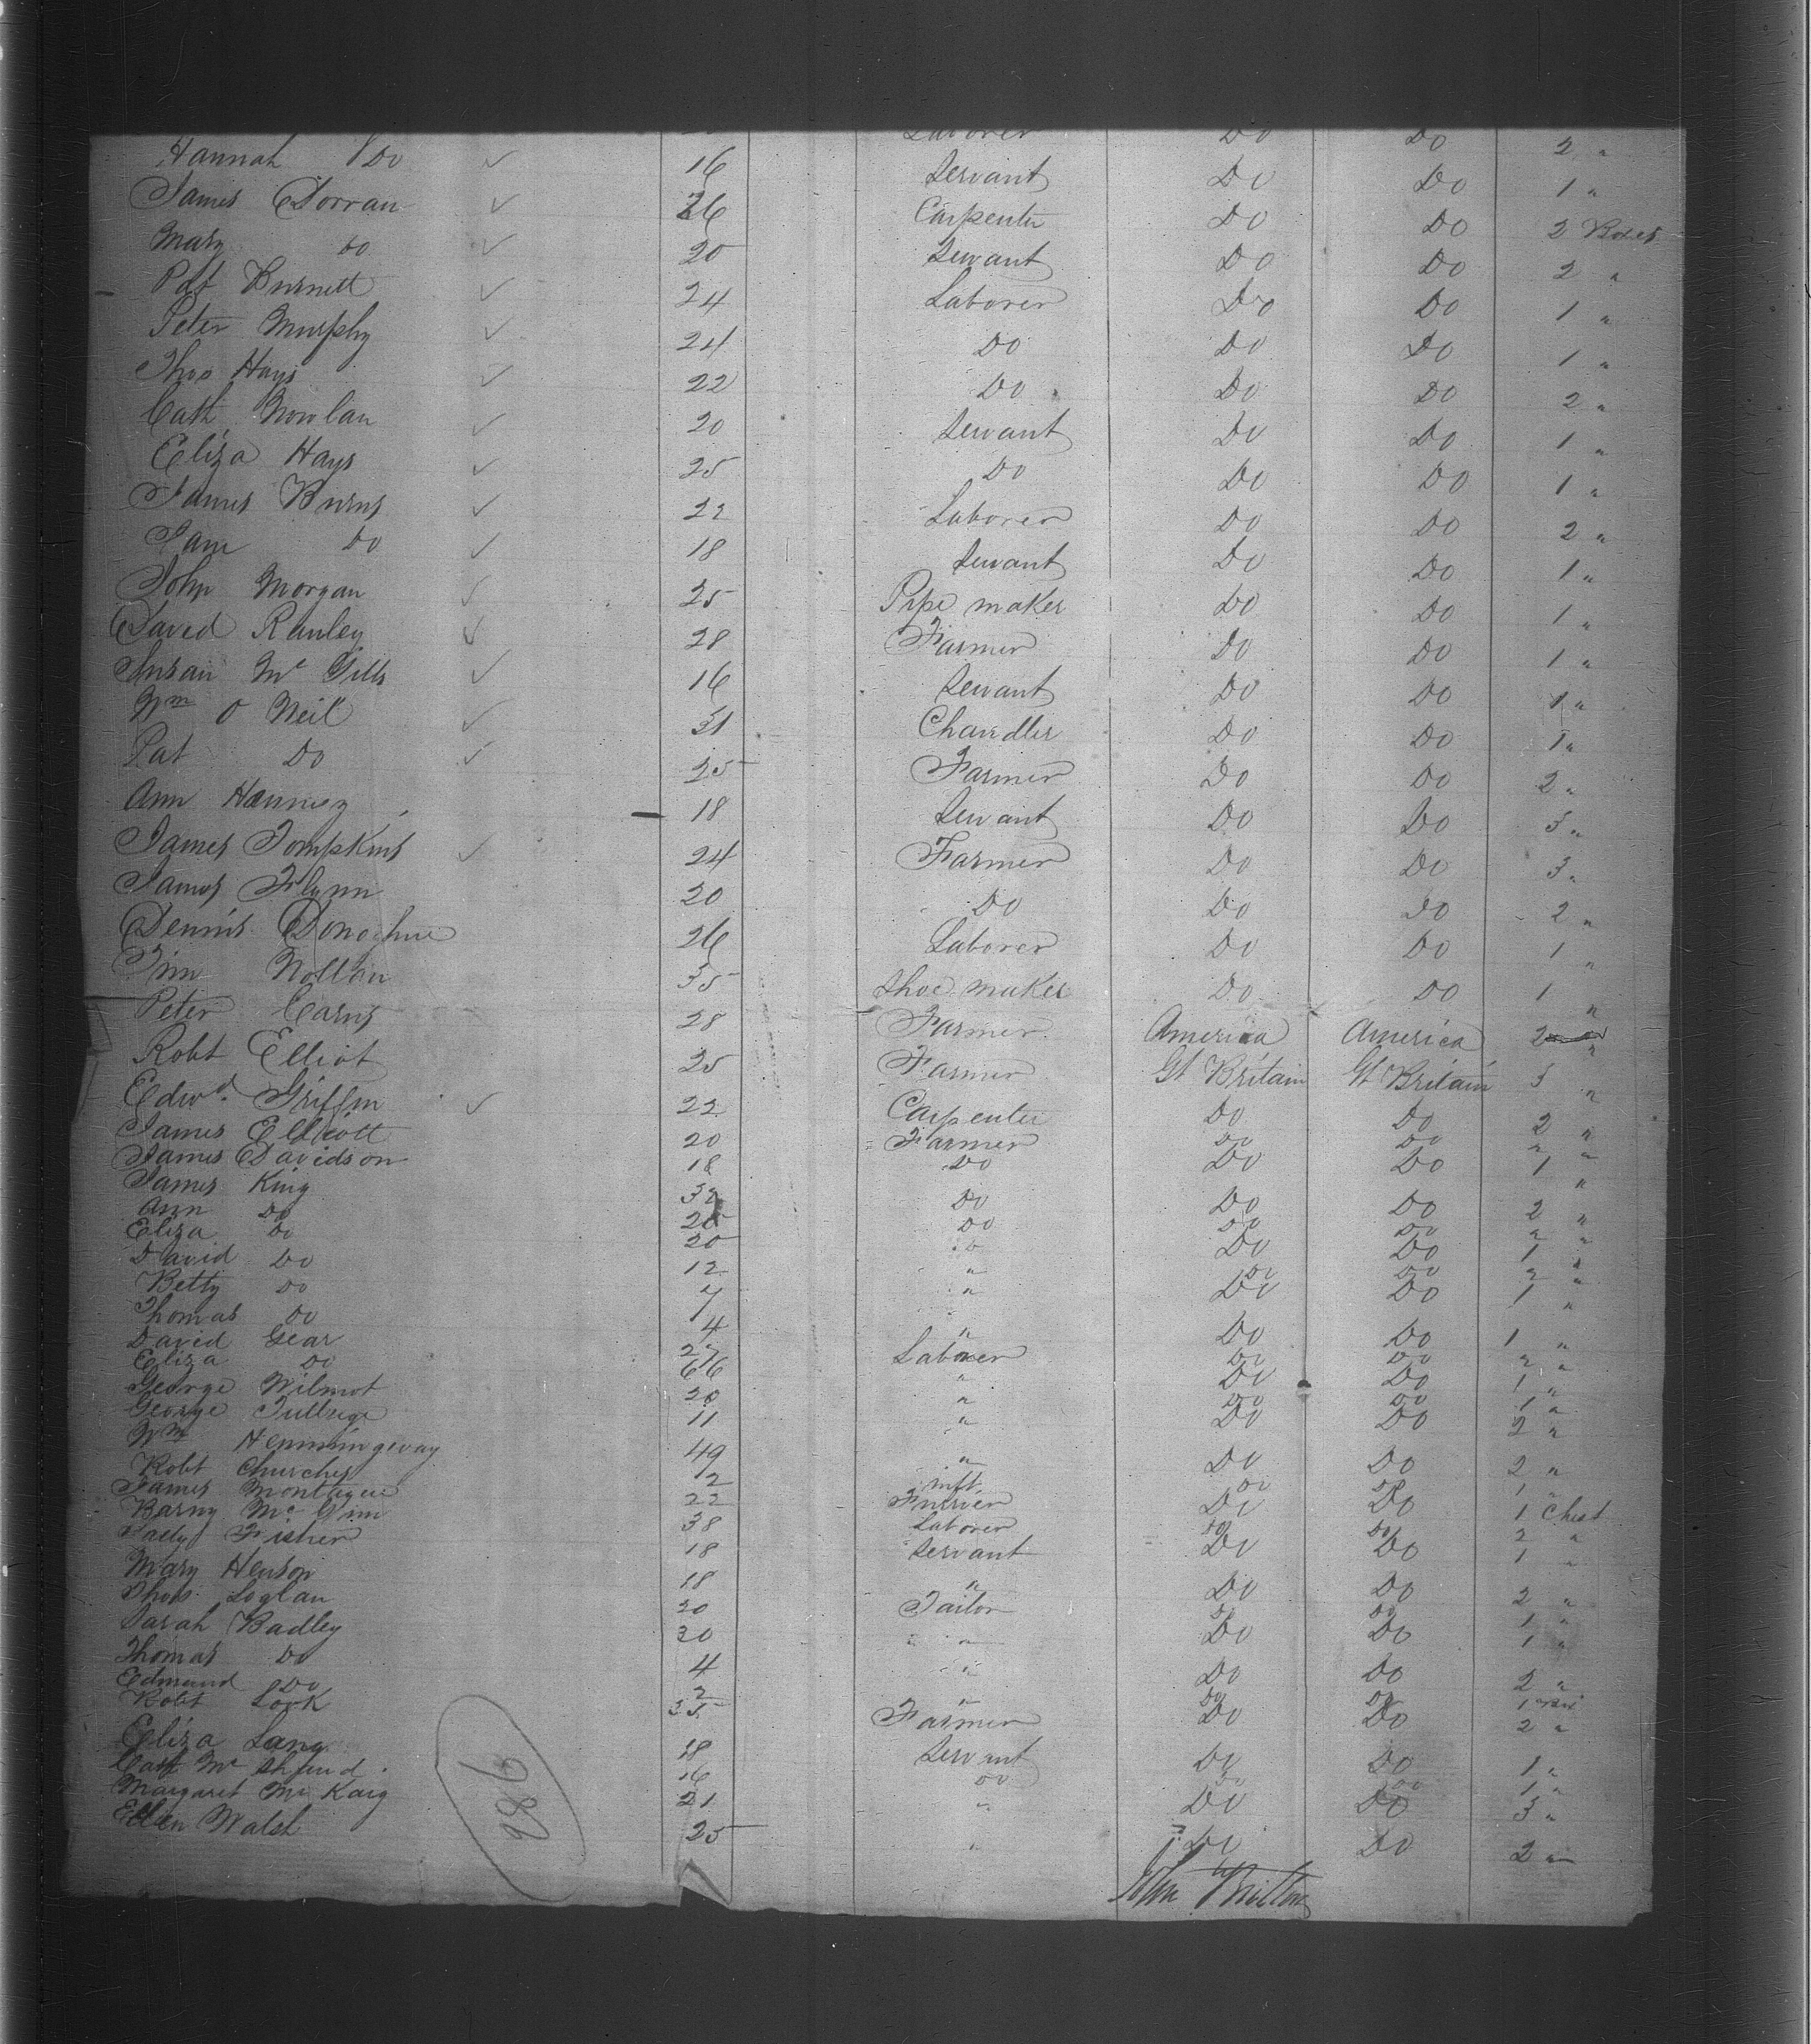 Laborer Do Do 2 "
Hannah Do ✓ 16 Servant Do Do 1 "
James Dorran ✓ 26 Carpenter Do Do 2 Boxes
Mary Do ✓ 20 Servant Do Do 2 "
Pat Burnett ✓ 24 Laborer Do Do 1 "
Peter Murphy ✓ 24 Do Do Do 1 "
Thos Hays ✓ 22 Do Do Do 2 "
Cath Nowlan ✓ 20 Servant Do Do 1 "
Eliza Hays ✓ 25 Do Do Do 1 "
James Burns ✓ 22 Laborer Do Do 2 "
Jane Do ✓ 18 Servant Do Do 1 "
John Morgan ✓ 25 Pipe maker Do Do 1 "
David Ranley ✓ 28 Farmer Do Do 1 "
Susan Mc Gills ✓ 16 Servant Do Do 1 "
Wm O Neil ✓ 31 Chandler Do Do 1 "
Pat Do ✓ 25 Farmer Do Do 2 "
Ann 18 Servant Do Do "
James Tompkins ✓ 24 Farmer Do Do 3 "
James Flynn 20 Do Do Do 2 "
Dennis Donoghue 26 Laborer Do Do 1 "
Tim Nollan 35 Shoe maker Do Do 1 "
Peter Carns 28 Farmer America America 2 "
Robt Elliot 25 Farmer Gt Britain Gt Britain "
Edwd. Griffin ✓ 22 Carpenter Do Do 2 "
James Elliott 20 Farmer Do Do " "
James Davidson 18 Do Do Do 1 "
James King 32 Do Do Do 2 "
Ann Do Do Do Do " "
Eliza Do 20 Do Do Do 1 "
David Do 12 " Do Do " "
Betty Do 7 " Do Do 1 "
Thomas Do 4 " Do Do 1 "
David Gear 27 Laborer Do Do " "
Eliza Do 66 " Do Do 1 "
George Wilmot 20 " Do Do 1 "
George 11 " Do Do 2 "
Wm Hemmingway 49 " Do Do 2 "
Robt Churches 12 Do Do 1 "
James Montague 22 Do Do 1 Chest
Barny Mc Ginn 38 Laborer Do Do 2 "
Fisher 18 Servant Do Do 1 "
Mary Henson 18 " Do Do 2 "
Thos. Loglan 20 Tailor Do Do 1 "
Sarah Badley 30 " Do Do 1 "
Thomas Do 4 " Do Do 2 "
Edmund Do 2 " Do Do 1
Robt Look 35 Farmer Do Do 2 "
Eliza Lang 18 Servant Do Do 1 "
Cath Mc 16 Do Do Do 1 "
Margaret Mc Kaig 21 " Do Do 3 "
Ellen Walsh 25 " Do Do 2 "
286
John